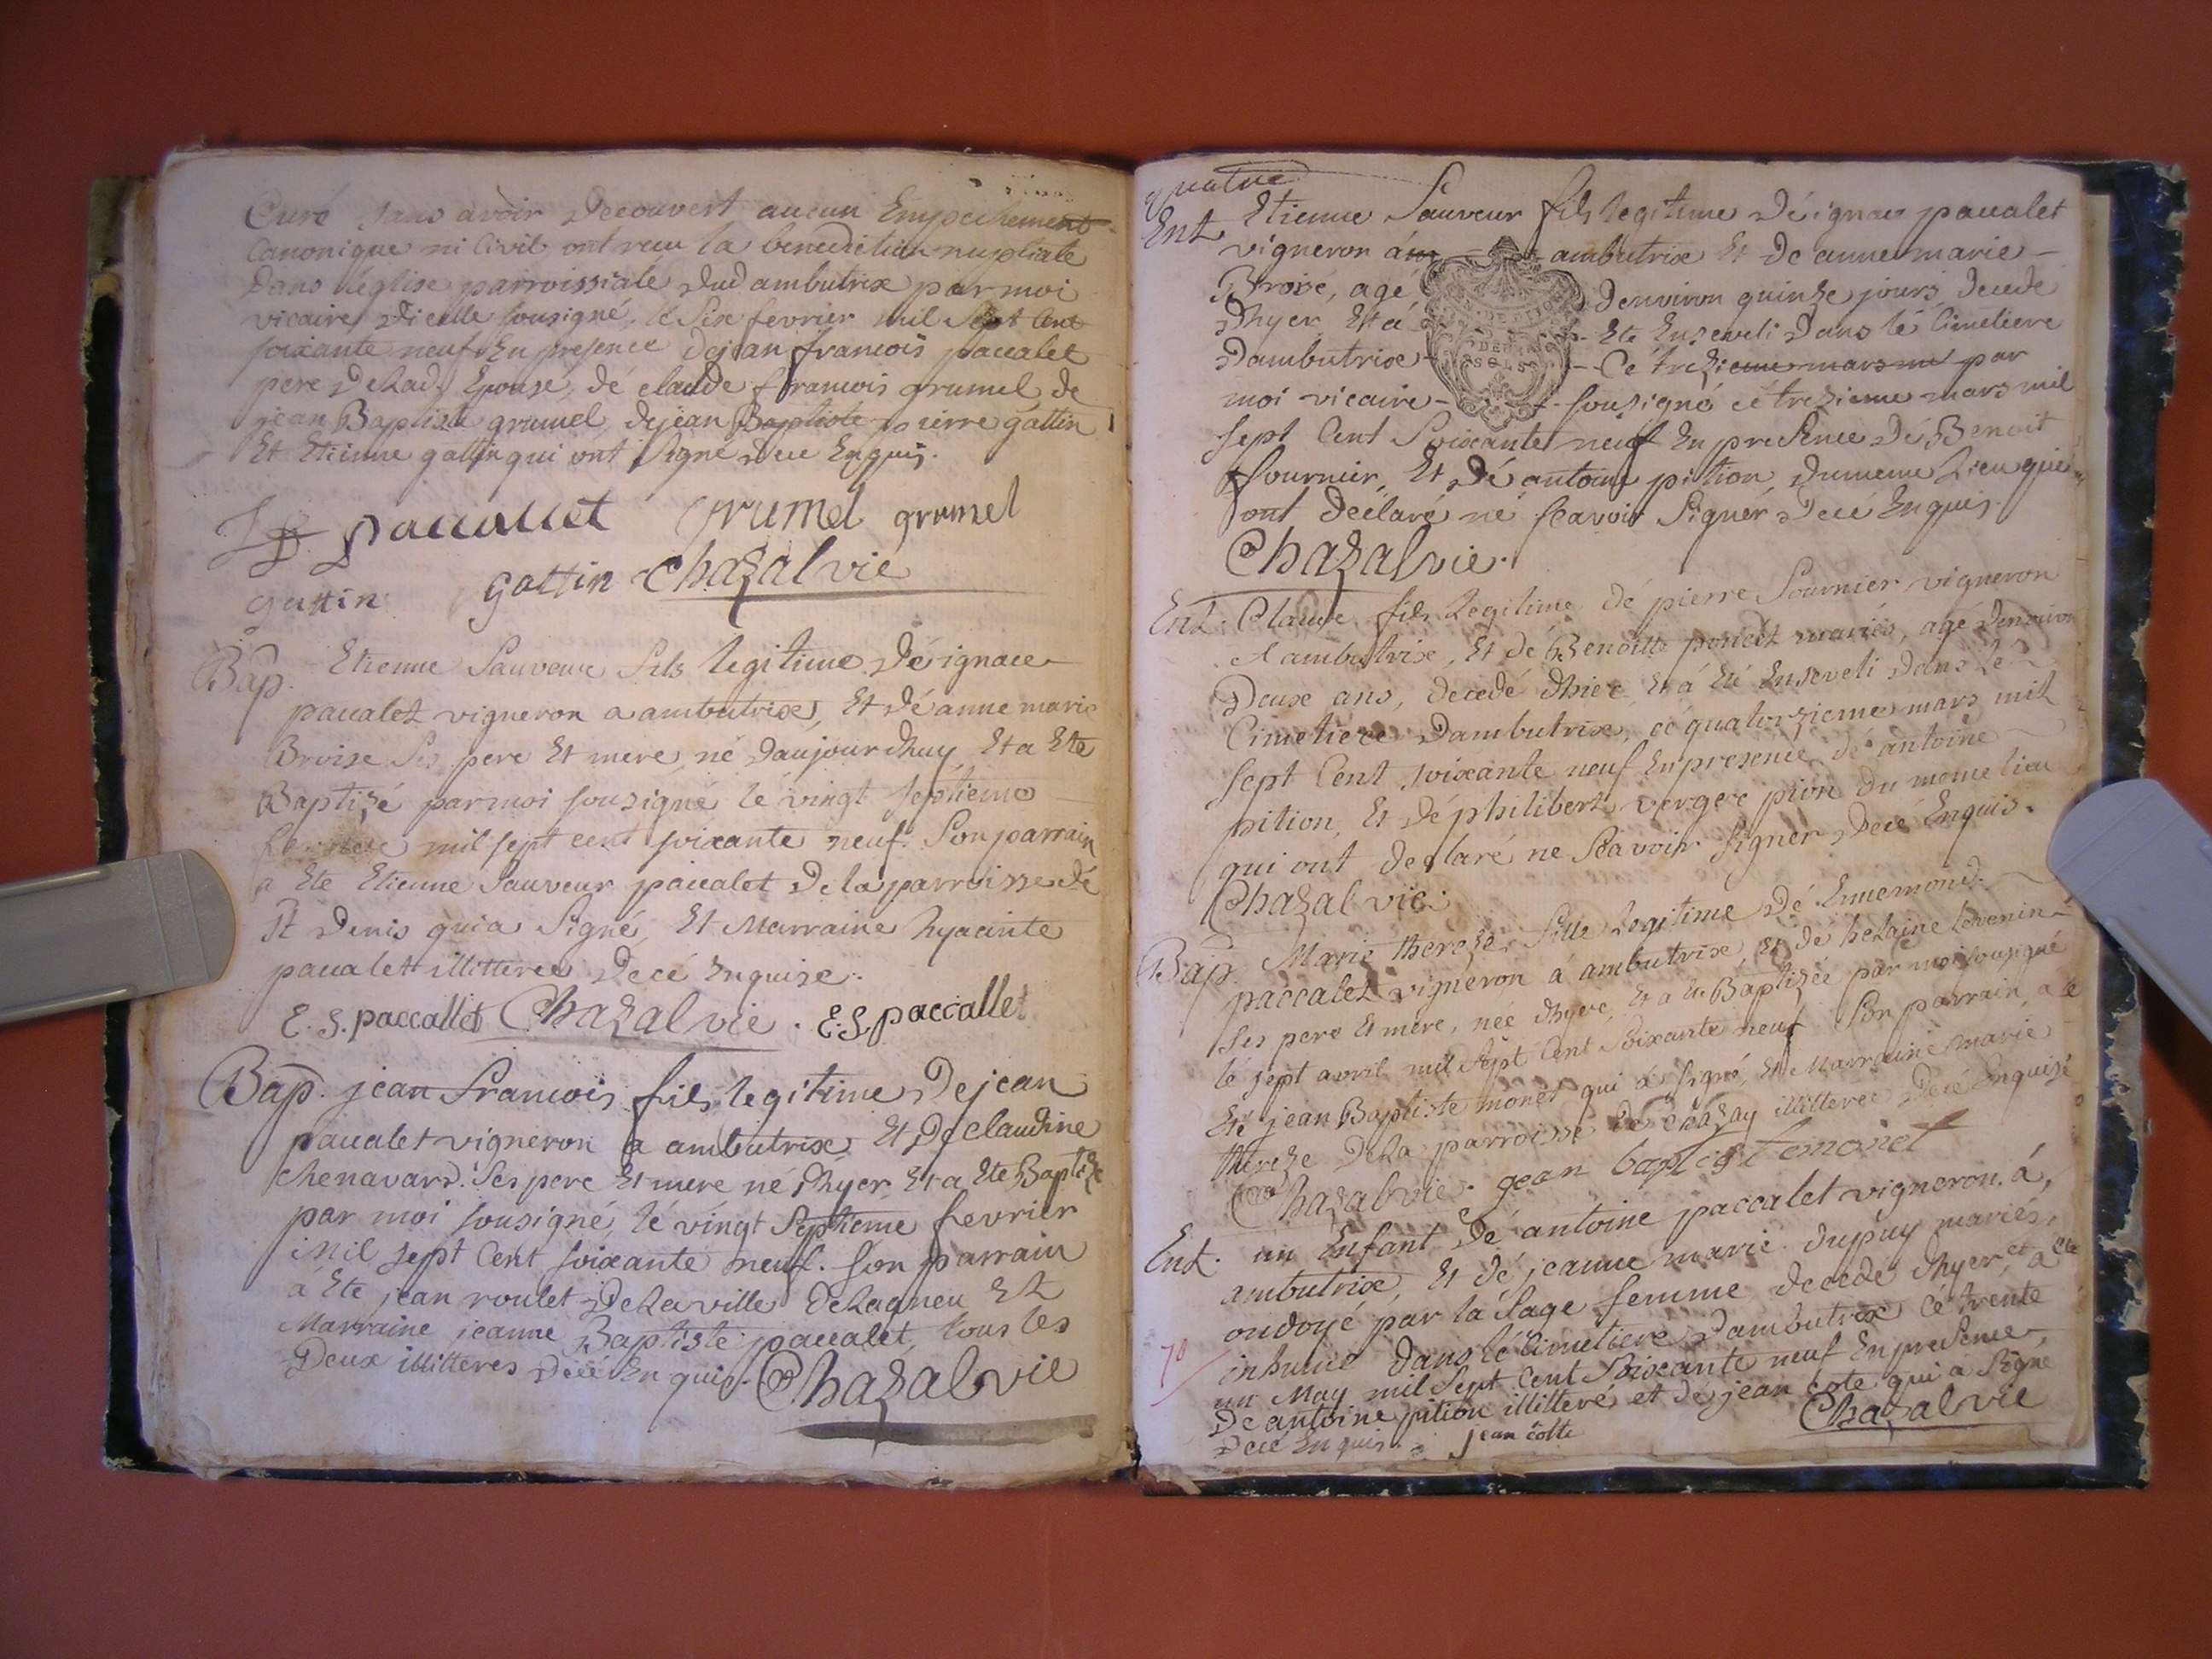 Curé sans avoir decouvert aucun Empechement
Canonique ni Civil, ont recu la benediction nuptiale
Dans l'église parroissiale dud ambutrix par moi
vicaire d'icelle sousigné, le Six fevrier mil Sept Cent
soixante neuf En presence dejean francois paccalet
pere delad. Epouse, dé claude francois grumel de
jean Baptiste grumel, dejean Baptiste pierre gattin
Et Etienne gattin qui ont Signé Dece Enquis.
paccallet Grumel grumel
gattin gattin Chazal vic
Bap. Etienne Sauveur fils legitime Dé ignace
paccalet vigneron a ambutrix, Et dé anne marie
Broise Ses pere Et mere, né Daujourdhuy, Et a Eté
Baptizé par moi sousigné lé vingt septieme
mil sept cent soixante neuf. Son parrain
a Eté Etienne Sauveur paccalet De la parroisse dé
St Denis qui a Signé, Et Marraine hyacinte
paccalet illitteree Decé Enquise.
E. S. paccallet Chazal vic. E. S. paccallet
Bap. jean francois fils legitime De jean
paccalet vigneron a ambutrix Et De claudine
chenavard. Ses pere Et mere né Dhyer, Et a Eté Baptizé
par moi sousigné, lé vingt Septieme fevrier
Mil sept Cent soixante neuf. Son parrain
á Eté jean roulet De La ville De Lagneu, Et
Marraine jeanne Baptiste paccalet, tous les
Deux illitteres Decé Enquis. Chazal vic
quatre
Ent. Etienne Sauveur fils legitime Dé ignace paccalet
vigneron á ambutrix Et De anne marie
Broise, agé Denviron quinze jours, Decede
Dhyer, Et á Eté Enseveli Dans lé Cimetiere
Dambutrix Cé trezieme mars par
moi vicaire sousigné cé trezieme mars mil
sept Cent Soixante neuf En presence Dé Benoit
fournier, Et Dé antoine pition, Dumeme Lieu qui
ont Declaré né scavoir Signer Decé Enquis.
Chazal vic.
Ent. Claude fils Legitime dé pierre Fournier vigneron
A ambutrix, Et dé Benoitte poncet mariés, agé Denviron
Deux ans, decedé dhier Et á Eté Enseveli dans lé
Cimetiere Dambutrix, cé quatorzieme mars mil
sept Cent soixante neuf En presence dé antoine
pition, Et Dé philibert verger pion du meme lieu
qui ont declaré ne Scavoir Signer Decé Enquis.
Chazal vic.
Bap. Marie thereze fille legitime Dé Ennemond
paccalet vigneron á ambutrix, Et dé helaine tevenin
Ses pere Et mere, née dhyer, Et a Eté Baptizée par moi sousigné
lé sept avril mil Sept Cent Soixante neuf Son parrain a
Eté jean Baptiste monet qui á signé, Et Marraine marie
thereze Dela parroisse de chazay illitteree Decé Enquise
Chazal vic. jean baptiste monet
Ent. un Enfant Dé antoine paccalet vigneron á,
ambutrix, Et dé jeanne marie dupuy mariés,
ondoyé par la Sage femme Decede dhyer, et a Eté
inhumé dans lé Cimetiere Dambutrix Cé trente
un May mil Sept Cent Soixante neuf En presence
De antoine pition illitteré, et de jean cote qui a Signé
Decé Enquis. jean cotte Chazal vic
70